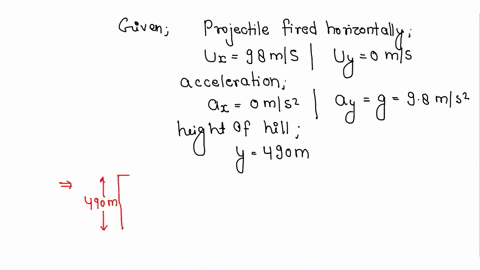 Given; Projectile fired horizontally;
Ux = 98 m/s | Uy = 0 m/s
acceleration;
ax = 0 m/s² | ay = g = 9.8 m/s²
height of hill;
y = 490m
⇒ 490m